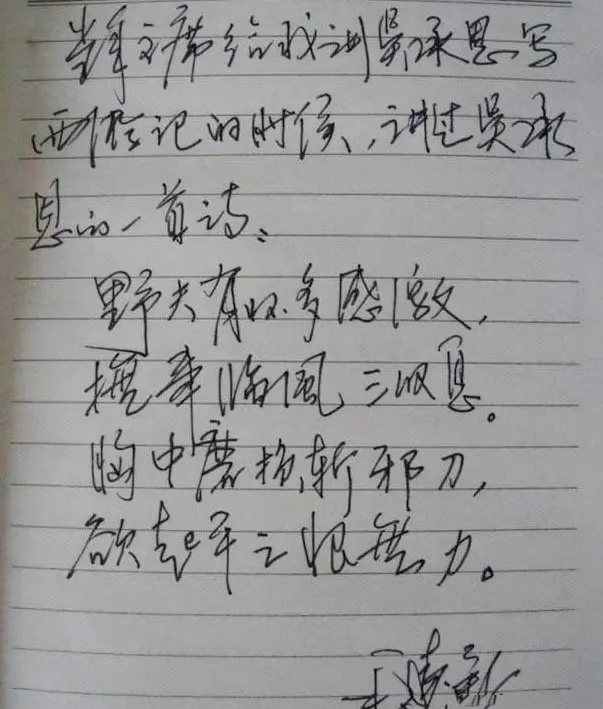 当年主席给我讲吴承恩写
西游记的时候，讲过吴承
恩的一首诗：
野夫有怀多感激，
撫事临風三叹息。
胸中磨损斩邪刀，
欲起平之恨無力。